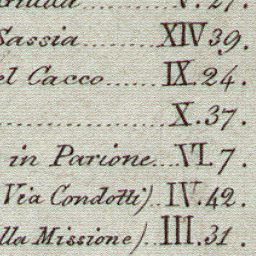 Sassia.......XIV.39.
el Cacco......IX.24.
..................X.37.
in Parione...VI.7.
Via Condotti)..IV.42.
lla Missione)..III.31.